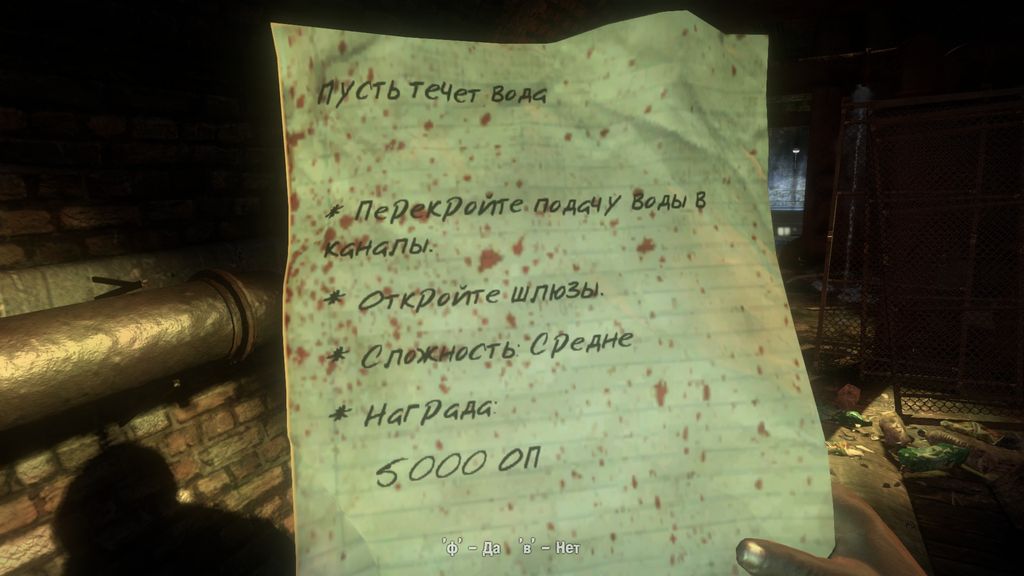 Пусть течет вода
* Перекройте подачу воды в
каналы.
* Откройте шлюзы.
* Сложность: Средне
* Награда:
5000 ОП
'ф' – Да 'в' – Нет